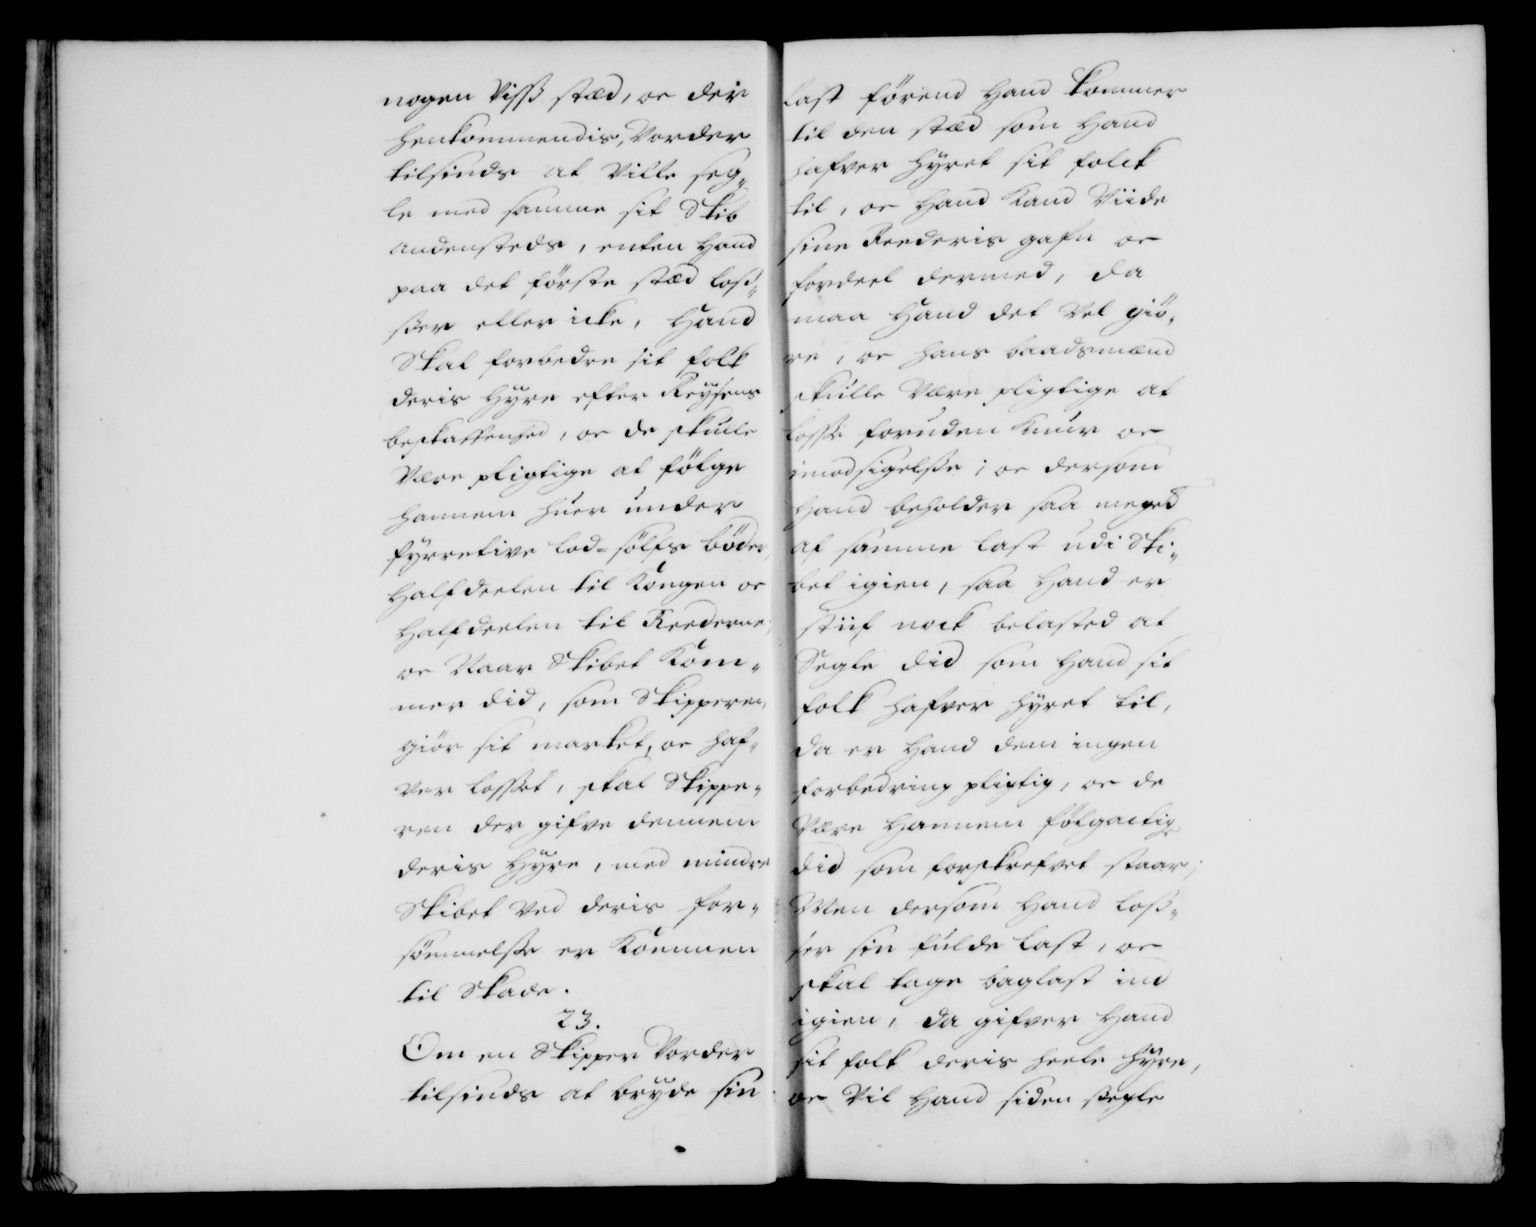 nogen Viß stæd, oc der
henkommendis, Vorder
tilsinds at Ville seg¬
le med samme sit Skib
andensteds, enten Hand
paa det förste stæd loss¬
ser eller icke, Hand
Skal forbedre sit folk
deris Hyre efter Reysens
beskaffenhed, oc de skulle
Være pligtige at fölge
hannem huer under
fyrretive lod-sölfs böder,
Halfdeelen til Kongen oc
Halfdeelen til Reederne,
oc Naar Skibet Kom¬
mer did, som Skipperen
giör sit market, oc haf¬
ver losset, skal Skippe¬
ren der gifve dennem
deris Hyre, med mindre
Skibet Ved deris for¬
sömmelße er Kommen
til Skade.
23.
Om en Skipper Vorder
tilsinds at bryde sin
last förend Hand Kommer
til den stæd som Hand
hafver hyret sit folck
til, oc Hand Kand Viide
sine Reederis gafn oc
fordeel dermed, da
maa Hand det Vel giö¬
re, oc hans baadsmænd
skulle Være pligtige at
losse foruden Knur oc
imodsigelße; oc dersom
Hand beholder saa meget
af samme last udi Ski¬
bet igien, saa Hand er
stiif nock belasted at
Segle did som Hand sit
folk hafver hyret til,
da er Hand dem ingen
forbedring pligtig, oc de
Være Hannem fölgactig
did som forskrefvet staar;
Men dersom Hand loß¬
ser sin fulde last, oc
skal tage baglast ind
igien, da gifver Hand
sit folk deris heele hyre,
oc Vil Hand siden segle